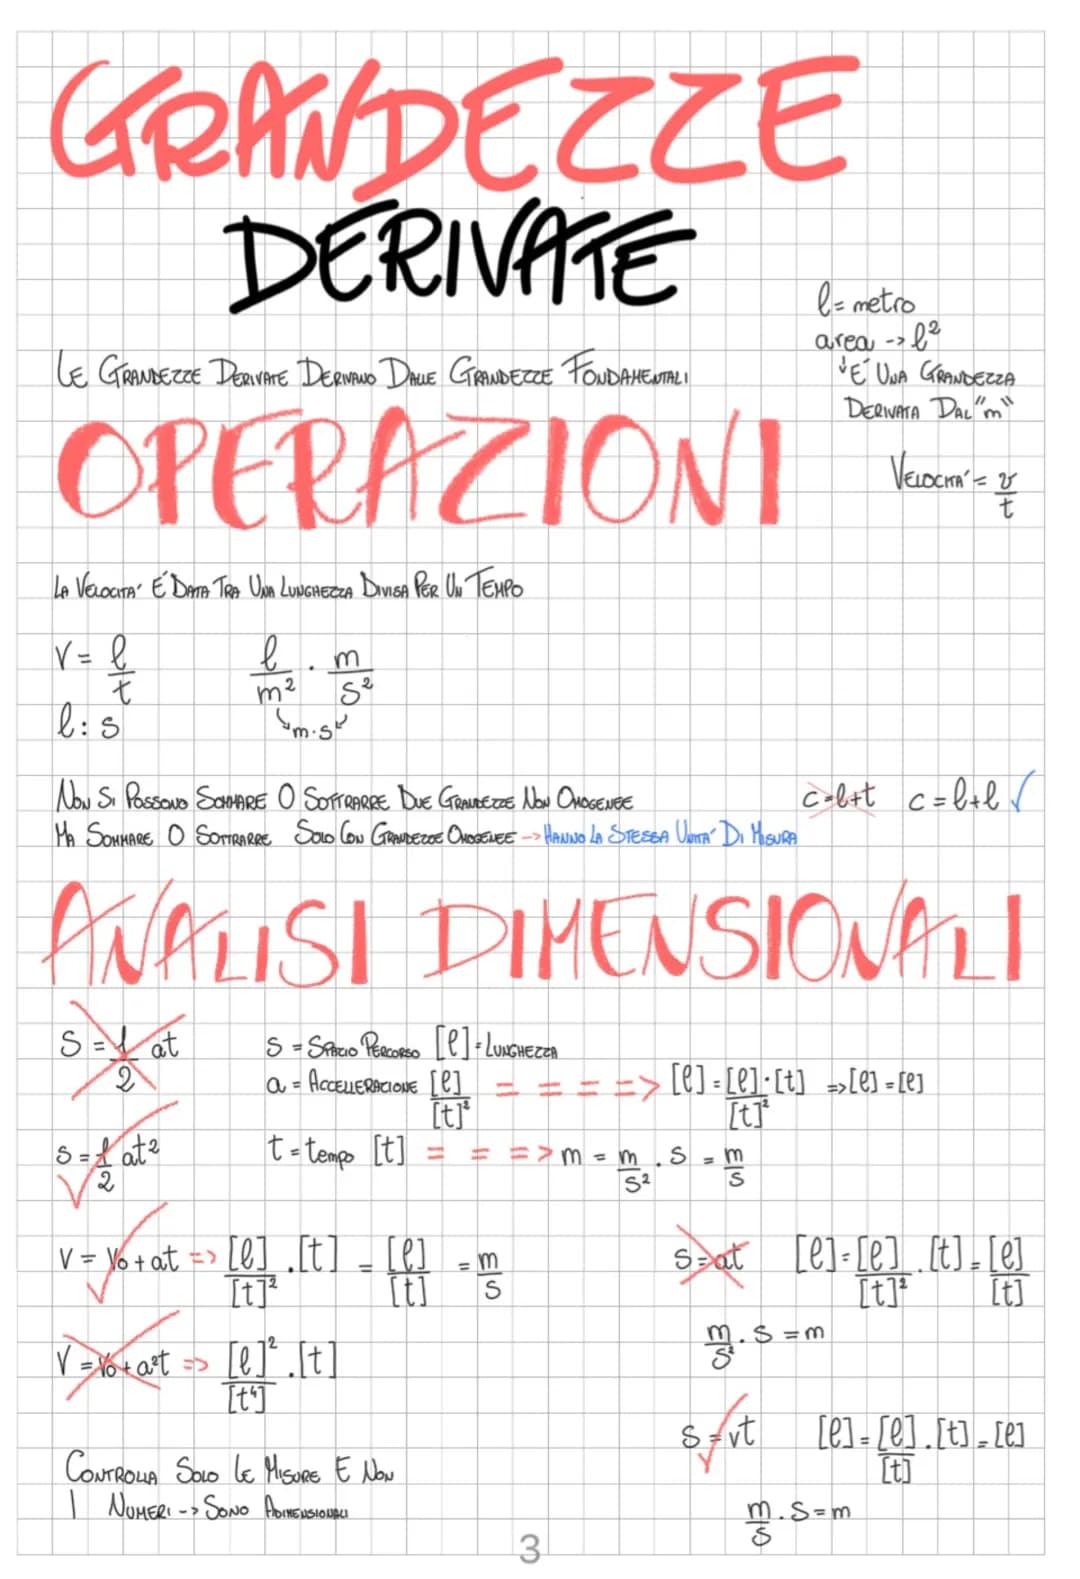 GRANDEZZE
DERIVATE
l = metro
area -> l²
LE GRANDEZZE DERIVATE DERIVANO DALLE GRANDEZZE FONDAMENTALI
↓É UNA GRANDEZZA
DERIVATA DAL "m"
OPERAZIONI
VELOCITA' = v/t
LA VELOCITA' É DATA TRA UNA LUNGHEZZA DIVISA PER UN TEMPO
V = l/t    l/m² · m/s²
l : s    m·s
NON SI POSSONO SOMMARE O SOTTRARRE DUE GRANDEZZE NON OMOGENEE    c=l+t    c=l+l ✓
MA SOMMARE O SOTTRARRE SOLO CON GRANDEZZE OMOGENEE -> HANNO LA STESSA UNITA' DI MISURA
ANALISI DIMENSIONALI
S = 1/2 at    s = SPAZIO PERCORSO [l] = LUNGHEZZA
a = ACCELLERAZIONE [l]/[t]² ====> [l] = [l]/[t]² · [t] => [l] = [l]
s = 1/2 at²    t = tempo [t] = = => m = m/s² · s = m/s
V = V₀ + at => [l]/[t]² · [t] = [l]/[t] = m/s
s = at    [l] = [l]/[t]² · [t] = [l]/[t]
m/s² · s = m
V = V₀ + a²t => [l]²/[t⁴] · [t]
s = vt    [l] = [l]/[t] · [t] = [l]
m/s · s = m
CONTROLLA SOLO LE MISURE E NON
I NUMERI -> SONO ADIMENSIONALI
3